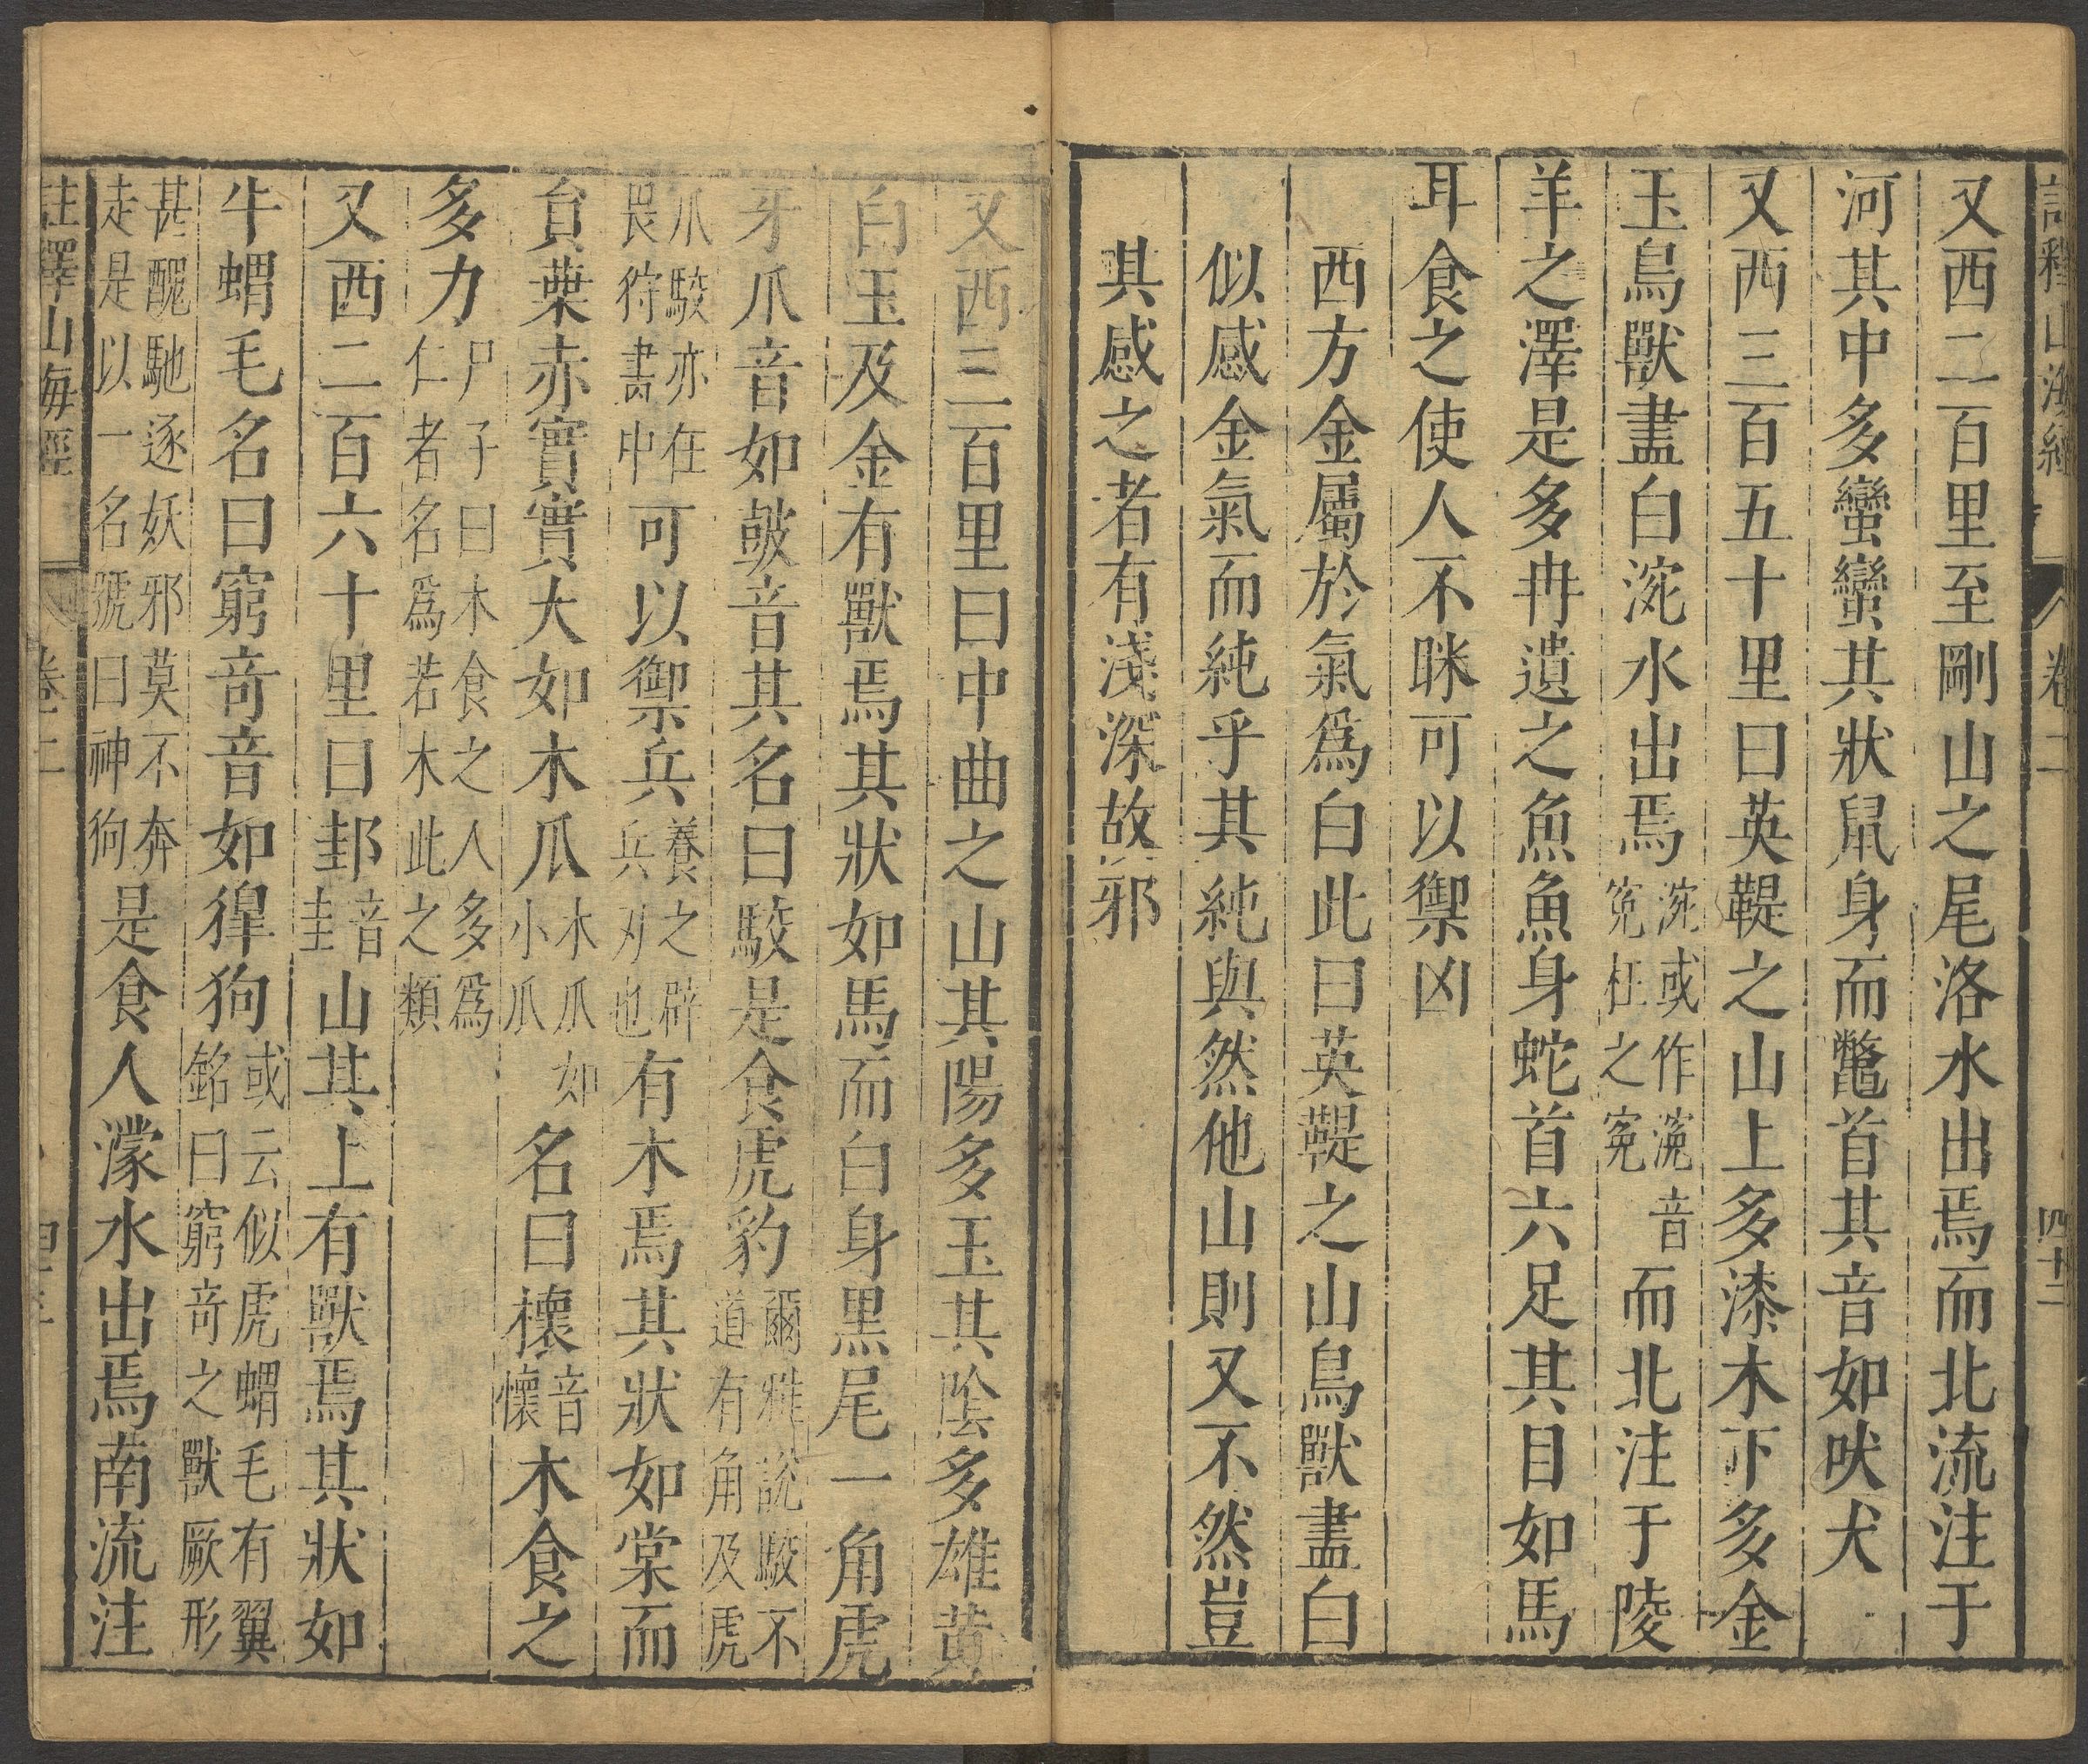 又西二百里至剛山之尾洛水出焉而北流注于
河其中多蠻蠻其狀鼠身而鼈首其音如吠犬
又西三百五十里曰英鞮之山上多漆木下多金
玉鳥獸盡白涴水出焉涴或作㴫音冤枉之冤而北注于陵
羊之澤是多冉遺之魚魚身蛇首六足其目如馬
耳食之使人不眯可以禦凶
西方金屬於氣爲白此曰英鞮之山鳥獸盡白
似感金氣而純乎其純與然他山則又不然豈
其感之者有淺深故邪
又西三百里曰中曲之山其陽多玉其陰多雄黄
白玉及金有獸焉其狀如馬而白身黑尾一角虎
牙爪音如皷音其名曰駮是食虎豹爾雅說駮不道有角及虎
爪駮亦在畏狩書中可以禦兵養之辟兵刃也有木焉其狀如棠而
負葉赤實實大如木瓜木瓜如小瓜名曰櫰音懷木食之
多力尸子曰木食之人多爲仁者名爲若木此之類
又西二百六十里曰邽音圭山其上有獸焉其狀如
牛蝟毛名曰窮竒音如獋狗或云似虎蝟毛有翼銘曰窮竒之獸厥形
甚醜馳逐妖邪莫不奔走是以一名號曰神狗是食人濛水出焉南流注
註釋山海經 卷二